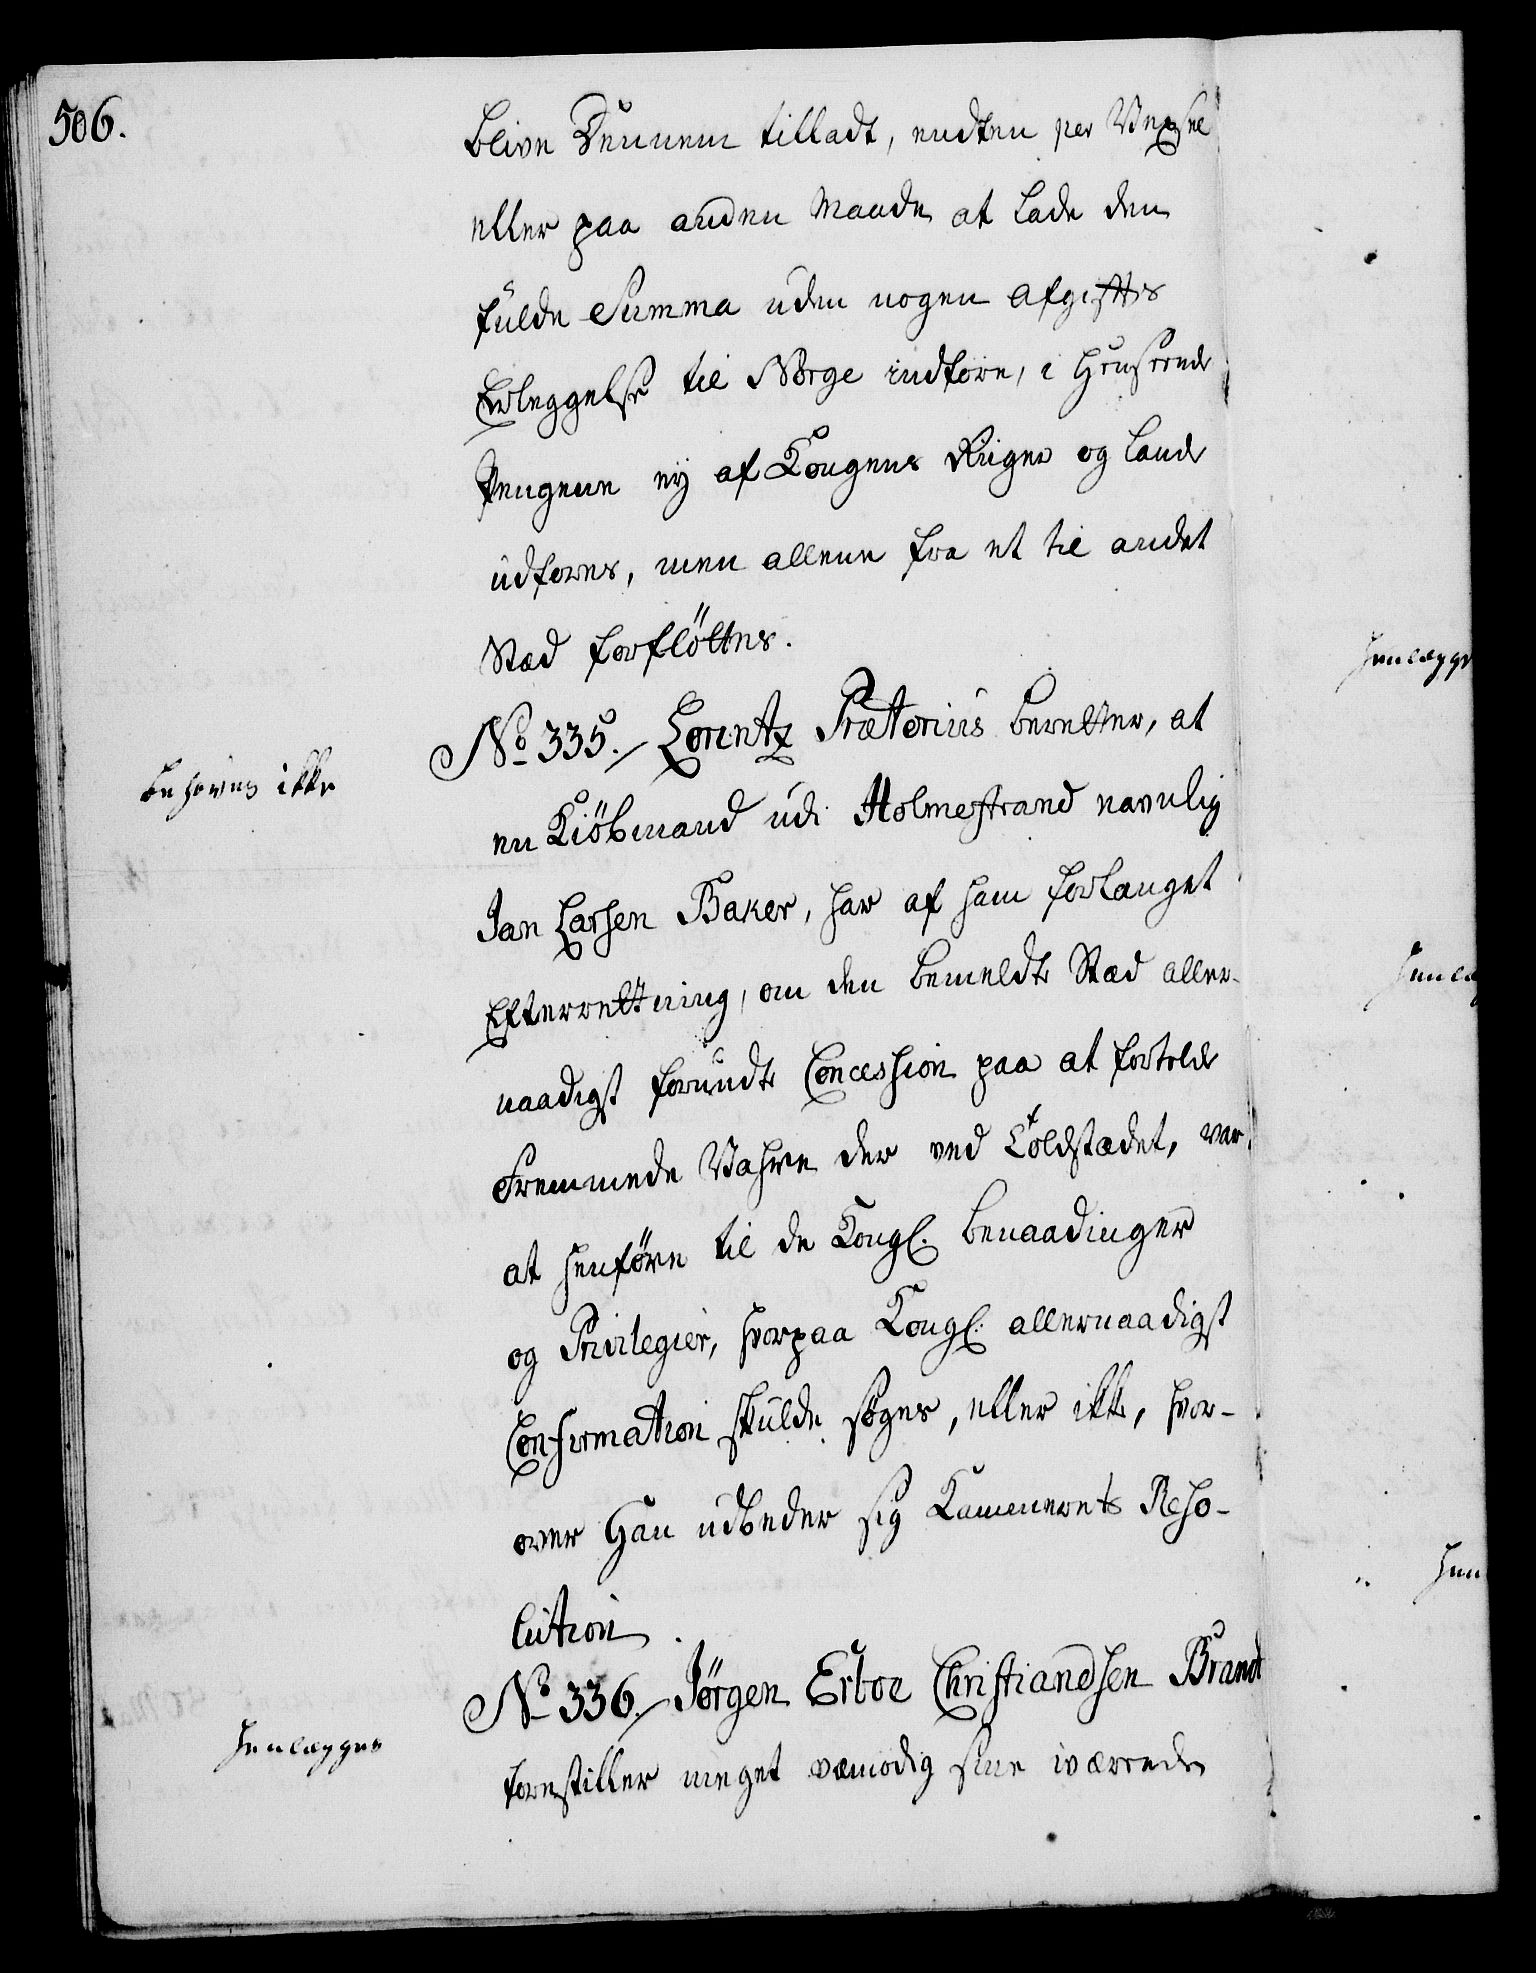 506.
blive Dennem tilladt, endten per Vexsel
eller paa anden Maade at lade den
fulde Summa uden nogen Afgifts
Erleggelse til Norge indføre, i Henseende
Pengene ey af Kongens Riiger og Lande
udføres, men allene fra et til andet
Stæd forflöttes.
No 335. Lorentz Prætorius beretter, at
behøves ikke
en Kiöbmand udi Holmestrand navnlig
Jan Larsen Baker, har af ham forlanget
Efterrettning, om den bemeldte Stæd aller-
naadigst forundte Concession paa at fortolde
Fremmede Vahre der ved Toldstædet, var
at henföre til de Kongl. benaadinger
og Privilegier, hvorpaa Kongl: allernaadigst
Confirmation skulde søges, eller ikke, hvor-
over Han udbeder sig Kammerets Reso-
lution.
No 336. Jørgen Erboe Christiandsen Brandt
Henlægges
forestiller meget væmodig sine iværende
Henlægge
Henlæg
Hen